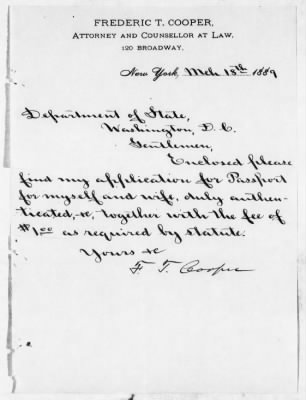 FREDERIC T. COOPER,
ATTORNEY AND COUNSELLOR AT LAW,
120 BROADWAY.
New York, Mch 18th 1889
Department of State,
Washington, D. C.
Gentlemen,
Enclosed please
find my application for Passport
for myself and wife, duly authen-
ticated, &c, together with the fee of
$1.00 as required by statute.
Yours &c
F. T. Cooper